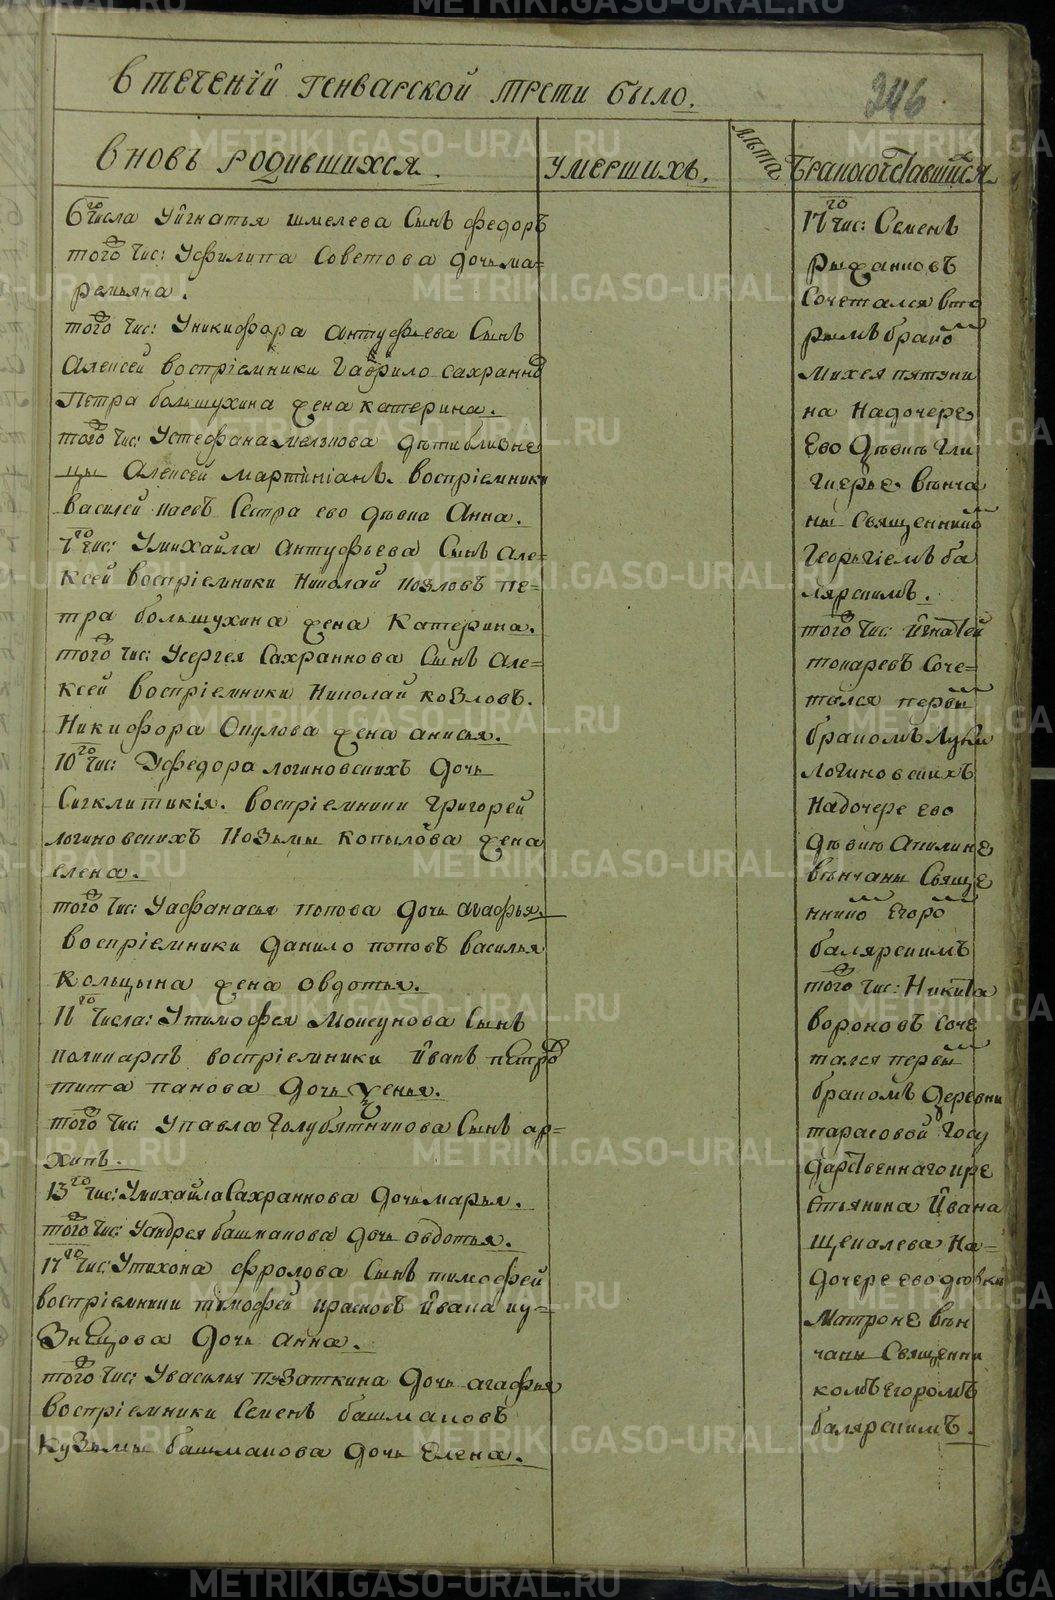 В течении генварской трети было.
246
Вновь родившихся.
умерших.
лѣта
Бракосочетавшихся
6го числа У игнатья шмелева Сынъ федоръ
того чис: У филипа Советова дочь ма=
ремьяна.
того чис: У никифора антуфьева Сынъ
Алексей восприемники Гаврило сахранно
Петра большухина жена катерина.
того чис: У стефана дѣти близне
цы Алексей мартиніанъ. восприемники
василей Сестра ево дѣвка Анна.
7го чис: У михайла антуфьева Сынъ але=
ксей восприемники Николай козловъ пе=
тра большухина жена Катерина.
того чис: У сергея Сахраннова Сынъ але=
ксей восприемники Николай козловъ.
Никифора Окулова жена анисья.
10го чис: У федора логиновскихъ дочь
Сигклитикія. восприемники григорей
логиновскихъ Козьмы копылова жена
елена.
того чис: У афанасья попова дочь агафья.
восприемники данило поповъ василья
кольцына жена овдотья.
11го числа: У тимофея Моисунова Сынъ
поликарпъ восприемники иванъ петро
тита панова дочь
того чис: У павла Голубятникова Сынъ ар=
хипъ.
13го чис: У михайла Сахраннова дочь марья.
того чис: У андрея башманова дочь овдотья.
17го чис: У тихона фролова Сынъ тимофей
восприемники тимофей красновъ ивана ку=
знецова дочь анна.
того чис: У василья пузаткина дочь агафья
восприемники Семенъ башмаковъ
кузьмы башмакова дочь елена.
17го чис: Семенъ
рыжанковъ
Сочетался вто
рымъ брако
Михея пятуни
на На дочере
Ево дѣвкѣ гли
герье вѣнча
ны Священнико
Георгіемъ ба
лярскимъ.
того чис: игнатей
токаревъ Соче=
тался первы
бракомъ луки
логиновскихъ
На дочере ево
дѣвкѣ акилине
вѣнчаны Свяще
ннико Егоро
балярскимъ
того чис: Никита
вороновъ соче
тался первы
бракомъ деревни
тарасовой Госу
дарственнаго кре
стьянина Ивана
Щепалева На=
дочере ево дѣвки
Матроне вѣн
чаны Священни
комъ егоромъ
балярскимъ.
METRIKI.GASO-URAL.RU